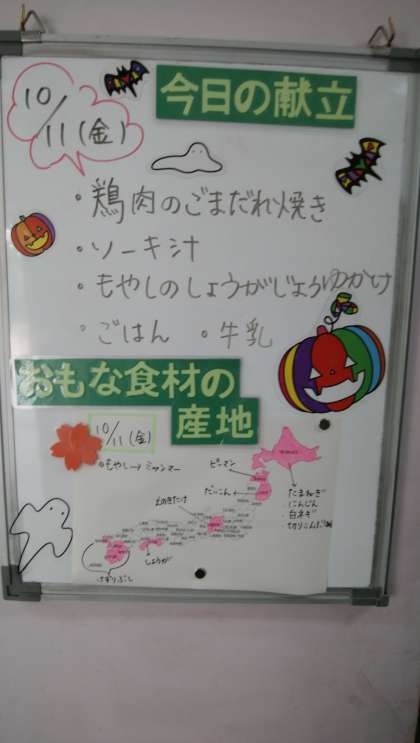 10/11(金)
今日の献立
・鶏肉のごまだれ焼き
・ソーキ汁
・もやしのしょうがじょうゆかけ
・ごはん ・牛乳
おもな食材の
産地
10/11(金)
もやし→ミャンマー
ピーマン
だいこん
えのきたけ
・たまねぎ
・にんじん
・白ネギ
・切りこんぶ
しょうが